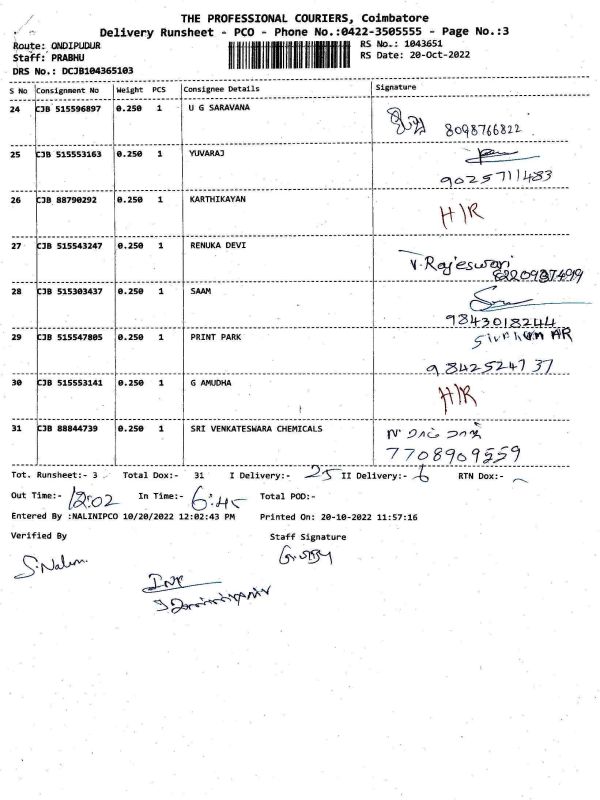 THE PROFESSIONAL COURIERS, Coimbatore
Delivery Runsheet - PCO - Phone No.:0422-3505555 - Page No.:3
Route: ONDIPUDUR RS No.: 1043651
Staff: PRABHU RS Date: 20-Oct-2022
DRS No.: DCJB104365103
S No Consignment No Weight PCS Consignee Details Signature
24 CJB 515596897 0.250 1 U G SARAVANA
8098766822
25 CJB 515553163 0.250 1 YUVARAJ
9025711483
26 CJB 88790292 0.250 1 KARTHIKAYAN
H/R
27 CJB 515543247 0.250 1 RENUKA DEVI
V. Rajeswari
28 CJB 515303437 0.250 1 SAAM
9843018244
29 CJB 515547805 0.250 1 PRINT PARK
9842524737
30 CJB 515553141 0.250 1 G AMUDHA
H/R
31 CJB 88844739 0.250 1 SRI VENKATESWARA CHEMICALS
7708909559
Tot. Runsheet:- 3 Total Dox:- 31 I Delivery:- 25 II Delivery:- 6 RTN Dox:-
Out Time:- 12:02 In Time:- 6:45 Total POD:-
Entered By :NALINIPCO 10/20/2022 12:02:43 PM Printed On: 20-10-2022 11:57:16
Verified By Staff Signature
S. Nalini